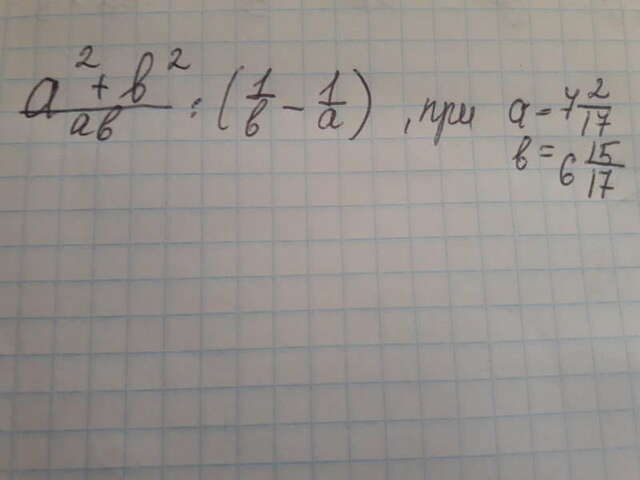 a² + b² / ab : (1/b − 1/a), при a = 7 2/17
b = 6 15/17